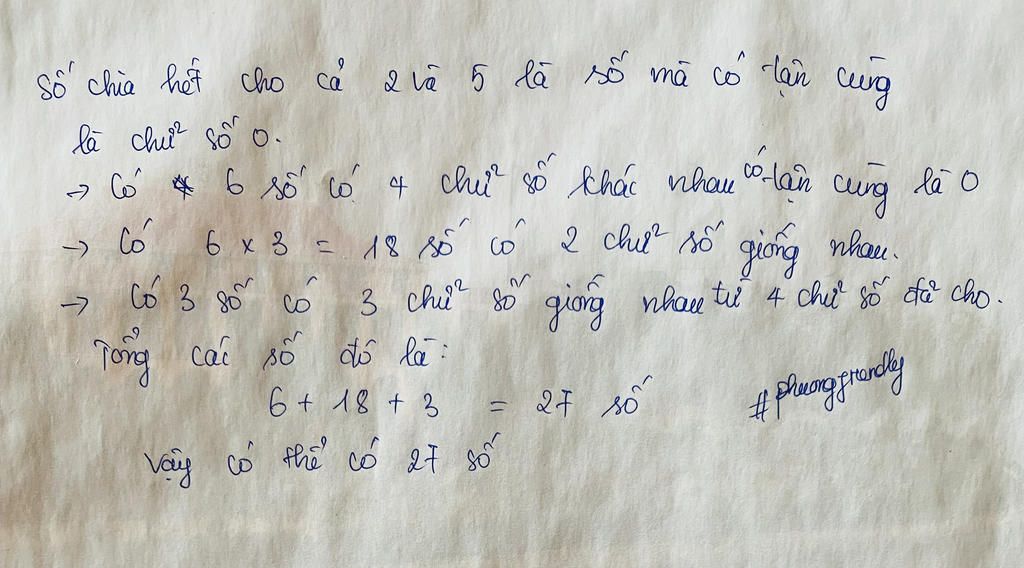 Số chia hết cho cả 2 và 5 là số mà có tận cùng
là chữ số 0.
→ Có 6 số có 4 chữ số khác nhau có tận cùng là 0
→ Có 6 x 3 = 18 số có 2 chữ số giống nhau.
→ Có 3 số có 3 chữ số giống nhau từ 4 chữ số đã cho.
Tổng các số đó là:
6 + 18 + 3 = 27 số
#phuongfrandly
Vậy có thể có 27 số